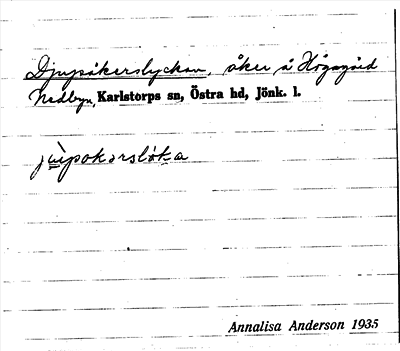 Djupåkerslyckan, åker å Högagärd
Nedbyn, Karlstorps sn, Östra hd, Jönk. l.
Annalisa Anderson 1935